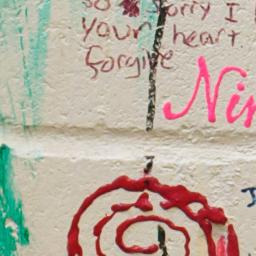 so sorry I
your heart
forgive
Nin
J